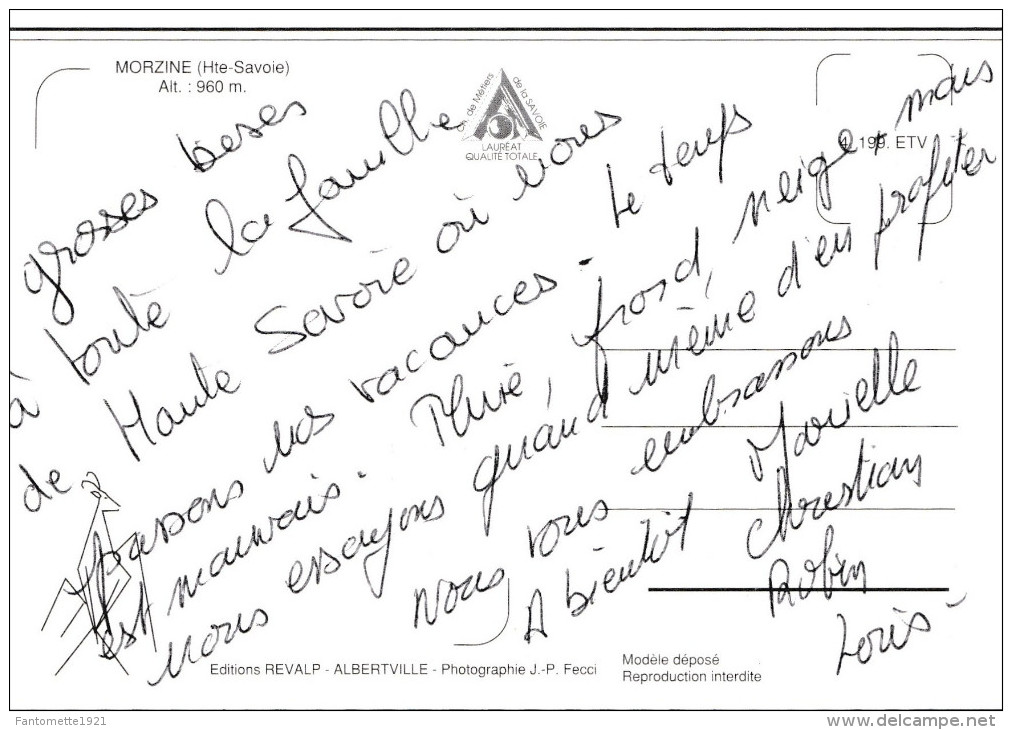 MORZINE (Hte-Savoie)
Alt. : 960 m.
Ch. de Métiers de la SAVOIE
LAURÉAT
QUALITÉ TOTALE
4. 199. ETV
grosses bises
à toute la famille
de Haute Savoie où nous
passons nos vacances. Le temps
est mauvais. Pluie, froid, neige, mais
nous essayons quand même d'en profiter
Nous vous embrassons
A bientôt Marielle
Christian
Robin
Loris
Editions REVALP - ALBERTVILLE - Photographie J.-P. Fecci
Modèle déposé
Reproduction interdite
Fantomette1921
delcampe.net